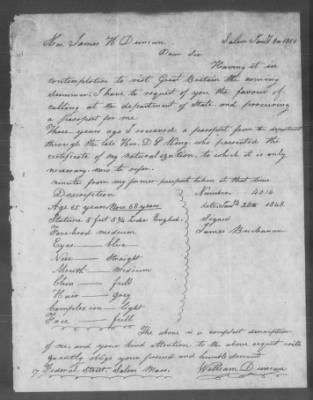 Hon. James H. Duncan. Salem
Dear Sir
Having it in
contemplation to visit Great Britain the coming
summer. I have to request of you the favour of
calling at the department of State and procuring
a passport for me.
Three years ago I received a passport from the department
through the late Hon. D P King, who presented the
certificate of my naturalization, to which it is only
necessary now to refer.
minute from my former passport taken at that time
Description Number 4014
Age 65 years Now 68 years dated 1848
Stature 5 feet 5 3/4 inches English. Signed
Forehead medium James Buchanan
Eyes — blue
Nose — straight
Mouth — medium
Chin — full
Hair — grey
Complexion — light
Face — full
The above is a complete description
of me, and your kind attention to the above request will
greatly oblige your friend and humble servant
17 Federal Street. Salem Mass. William Duncan